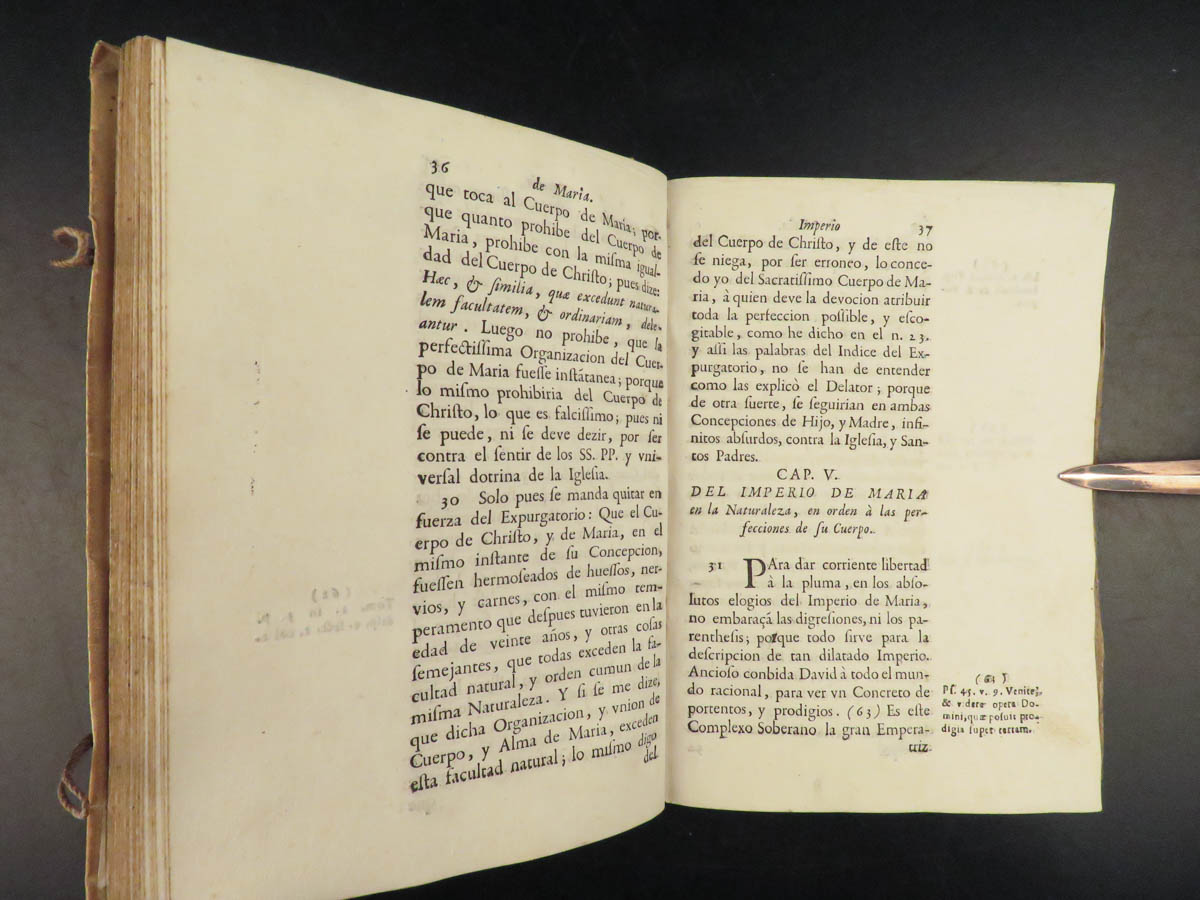 36
de Maria.
que toca al Cuerpo de Maria; por-
que quanto prohibe del Cuerpo de
Maria, prohibe con la miſma igual-
dad del Cuerpo de Chriſto; pues dize:
Hæc, & ſimilia, quæ excedunt natura-
lem facultatem, & ordinariam, dele-
antur. Luego no prohibe, que la
perfectiſsima Organizacion del Cuer-
po de Maria fueſſe inſtátanea; porque
lo miſmo prohibiria del Cuerpo de
Chriſto, lo que es falciſsimo; pues ni
ſe puede, ni ſe deve dezir, por ſer
contra el ſentir de los SS. PP. y vni-
verſal dotrina de la Igleſia.
30 Solo pues ſe manda quitar en
fuerza del Expurgatorio: Que el Cu-
erpo de Chriſto, y de Maria, en el
miſmo inſtante de ſu Concepcion,
fueſſen hermoſeados de hueſſos, ner-
vios, y carnes, con el miſmo tem-
peramento que deſpues tuvieron en la
edad de veinte años, y otras coſas
ſemejantes, que todas exceden la fa-
cultad natural, y orden cumun de la
miſma Naturaleza. Y ſi ſe me dize,
que dicha Organizacion, y vnion de
Cuerpo, y Alma de Maria, exceden
eſta facultad natural; lo miſmo digo
del
Imperio
37
del Cuerpo de Chriſto, y de eſte no
ſe niega, por ſer erroneo, lo conce-
do yo del Sacratiſsimo Cuerpo de Ma-
ria, à quien deve la devocion atribuir
toda la perfeccion poſsible, y eſco-
gitable, como he dicho en el n. 23.
y aſsi las palabras del Indice del Ex-
purgatorio, no ſe han de entender
como las explicò el Delator; porque
de otra ſuerte, ſe ſeguirian en ambas
Concepciones de Hijo, y Madre, infi-
nitos abſurdos, contra la Igleſia, y San-
tos Padres.
CAP. V.
DEL IMPERIO DE MARIA
en la Naturaleza, en orden à las per-
fecciones de ſu Cuerpo.
31 PAra dar corriente libertad
à la pluma, en los abſo-
lutos elogios del Imperio de Maria,
no embaraçá las digreſiones, ni los pa-
rentheſis; porque todo ſirve para la
deſcripcion de tan dilatado Imperio.
Ancioſo conbida David à todo el mun-
do racional, para ver vn Concreto de
portentos, y prodigios. (63) Es eſte
Complexo Soberano la gran Empera-
triz
Pſ. 45. v. 9. Venite,
& videte opera Do-
mini, quæ poſuit pro-
digia ſuper terram.